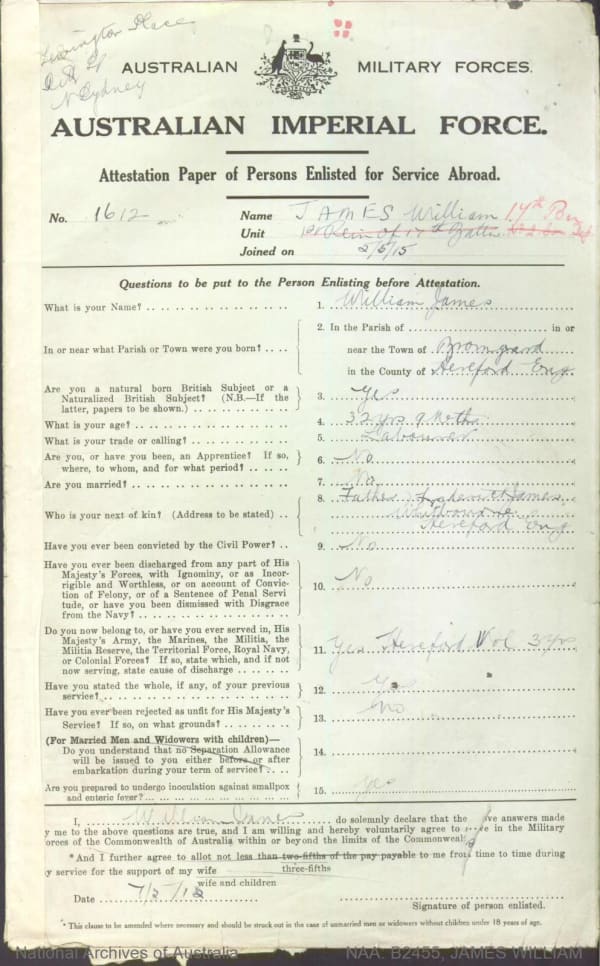 Place
N Sydney
AUSTRALIAN MILITARY FORCES.
AUSTRALIAN IMPERIAL FORCE.
Attestation Paper of Persons Enlisted for Service Abroad.
No. 1612
Name JAMES William 17th Bn
Unit 1st Rein of 17th Battn
Joined on 2/5/15
Questions to be put to the Person Enlisting before Attestation.
What is your Name? 1. William James
2. In the Parish of in or
In or near what Parish or Town were you born? near the Town of Bromyard
in the County of Hereford Eng
Are you a natural born British Subject or a
Naturalized British Subject? (N.B.—If the 3. Yes
latter, papers to be shown.)
What is your age? 4. 32 yrs 9 Mnths
What is your trade or calling? 5. Labourer
Are you, or have you been, an Apprentice? If so,
where, to whom, and for what period? 6. No
Are you married? 7. No
8. Father James
Who is your next of kin? (Address to be stated) Whitbourne
Hereford Eng
Have you ever been convicted by the Civil Power? 9. No
Have you ever been discharged from any part of His
Majesty's Forces, with Ignominy, or as Incor-
rigible and Worthless, or on account of Convic-
tion of Felony, or of a Sentence of Penal Servi 10. No
tude, or have you been dismissed with Disgrace
from the Navy?
Do you now belong to, or have you ever served in, His
Majesty's Army, the Marines, the Militia, the
Militia Reserve, the Territorial Force, Royal Navy, 11. Yes Hereford Vol 3 yrs
or Colonial Forces? If so, state which, and if not
now serving, state cause of discharge
Have you stated the whole, if any, of your previous
service? 12. Yes
Have you ever been rejected as unfit for His Majesty's
Service? If so, on what grounds? 13. No
(For Married Men and Widowers with children)—
Do you understand that no Separation Allowance
will be issued to you either before or after 14.
embarkation during your term of service?
Are you prepared to undergo inoculation against smallpox
and enteric fever? 15. Yes
I, William James do solemnly declare that the ve answers made
y me to the above questions are true, and I am willing and hereby voluntarily agree to ve in the Military
orces of the Commonwealth of Australia within or beyond the limits of the Commonweal
*And I further agree to allot not less than two-fifths of the pay payable to me from time to time during
three-fifths
y service for the support of my wife
wife and children
Date
Signature of person enlisted.
* This clause to be amended where necessary and should be struck out in the case of unmarried men or widowers without children under 18 years of age.
National Archives of Australia NAA: B2455, JAMES WILLIAM